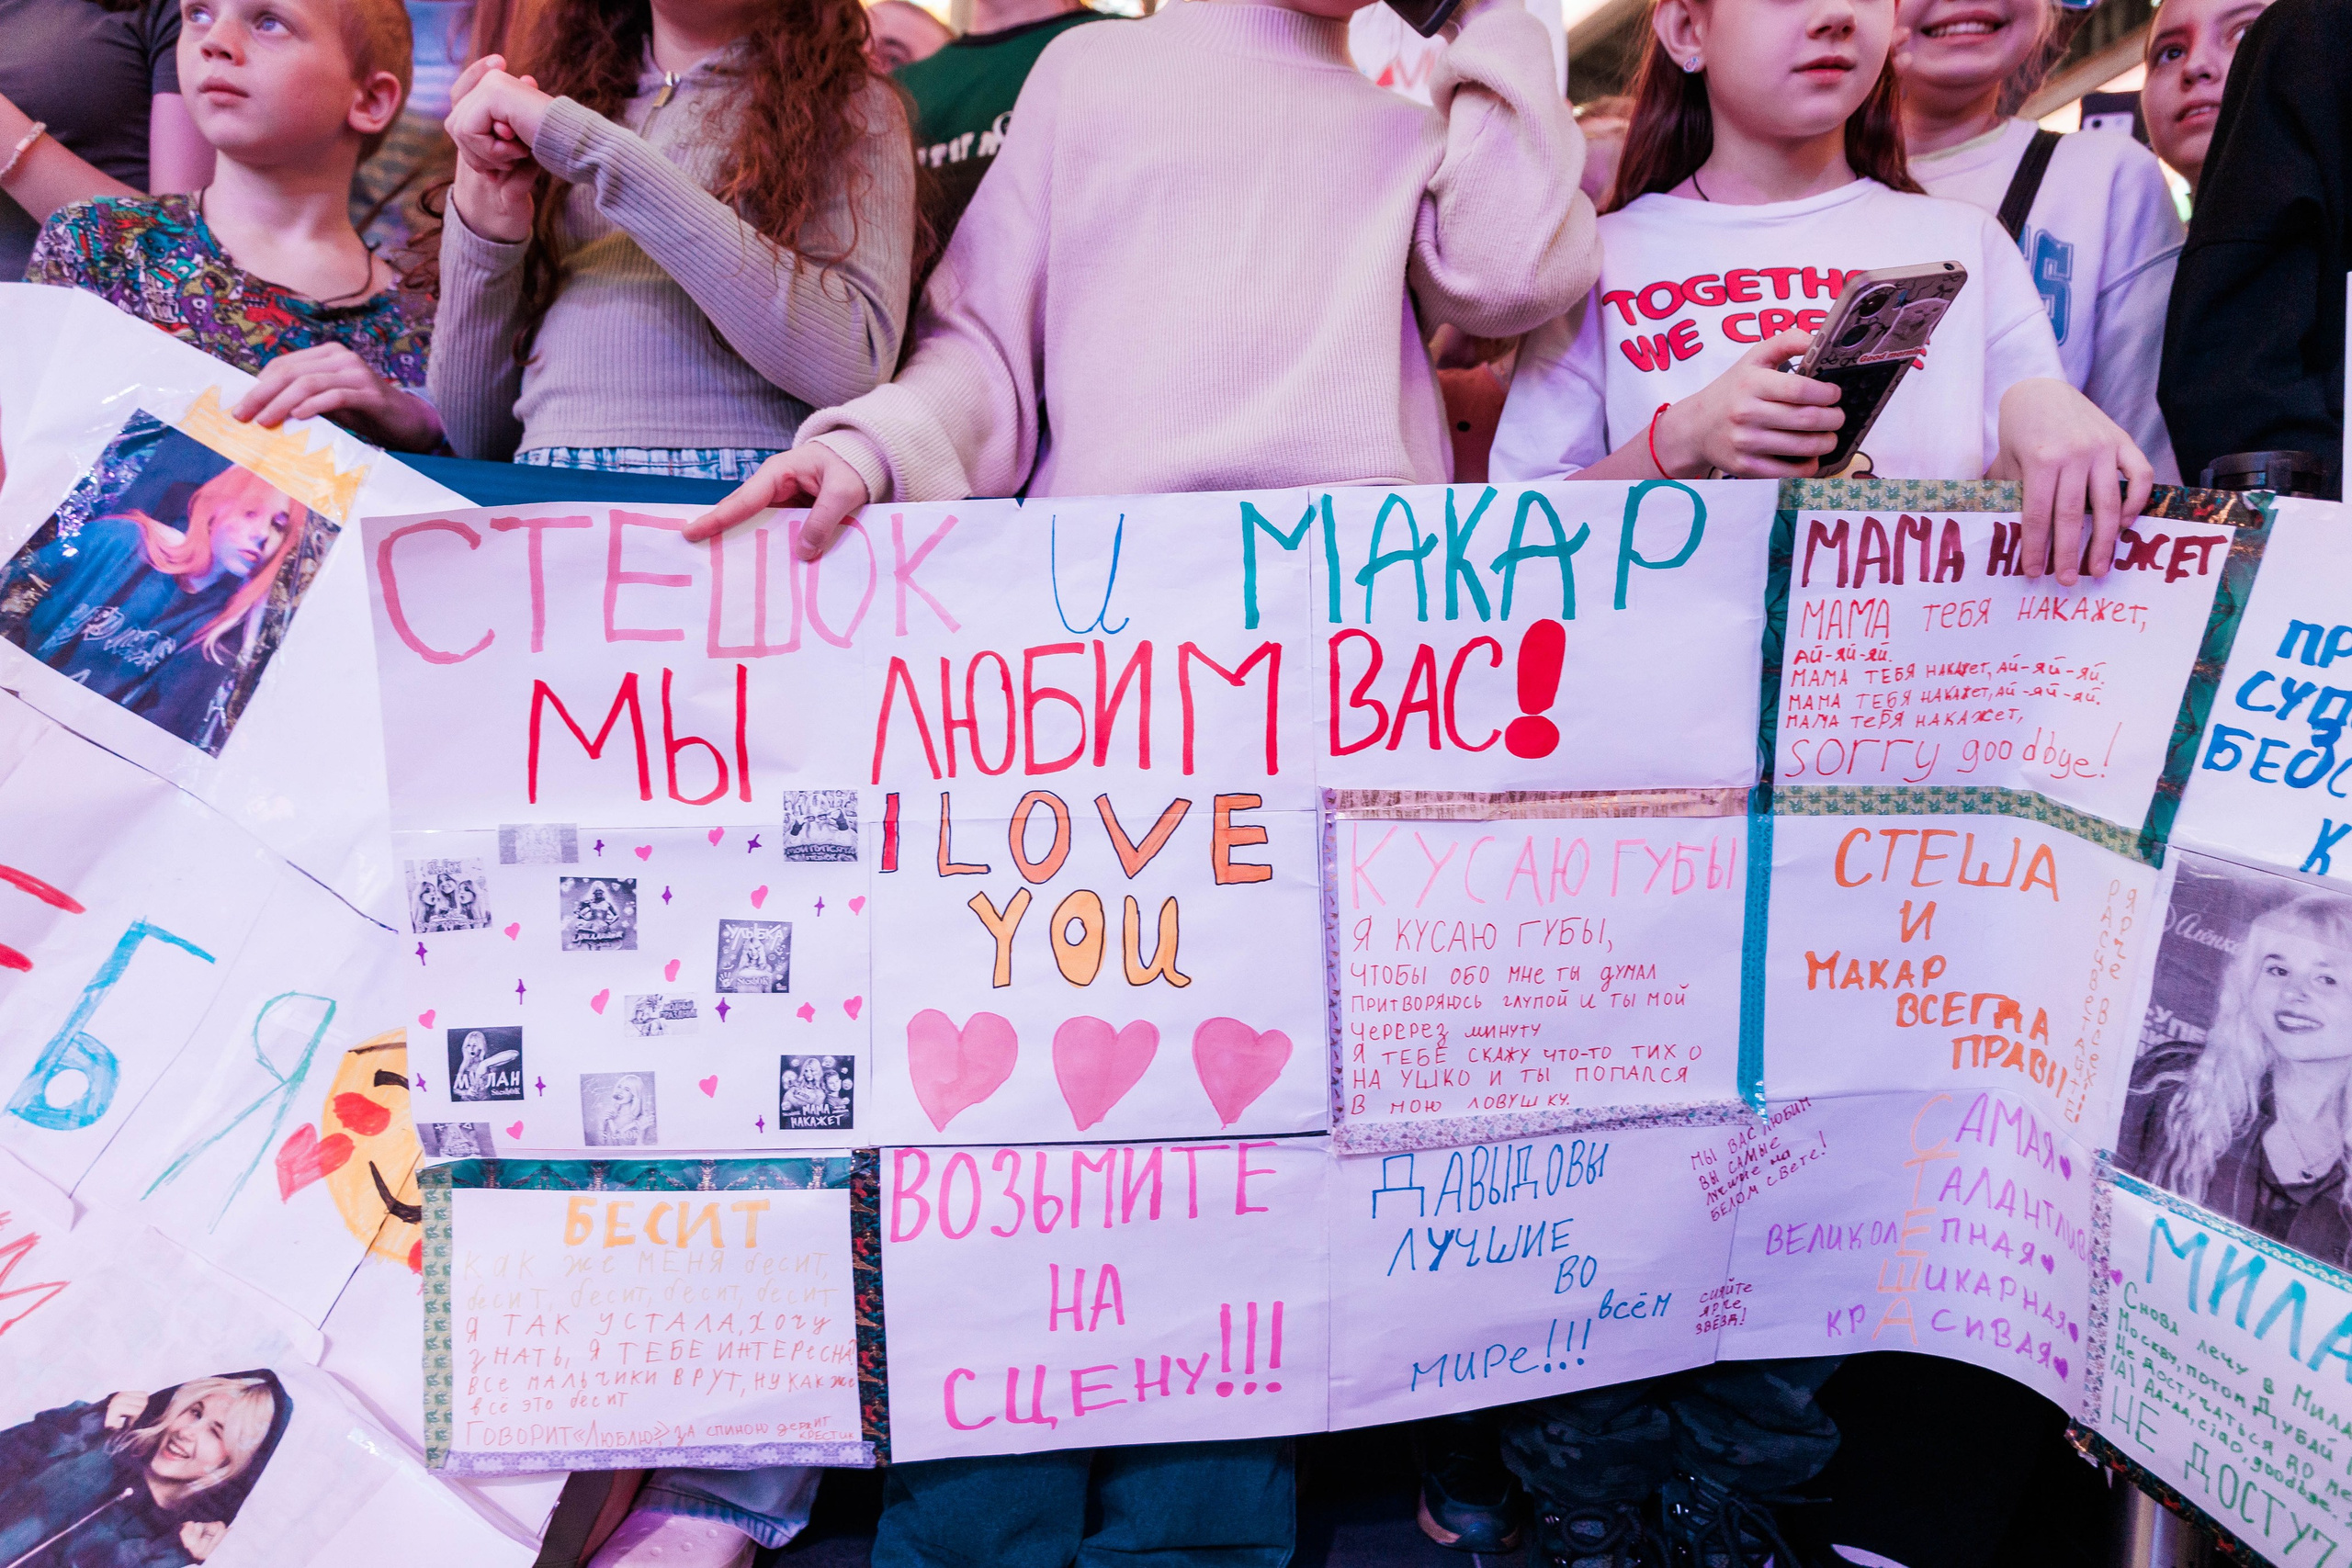 TOGETH
WE CRE
Good morning
СТЕШОК И МАКАР
МЫ ЛЮБИМ ВАС!
I LOVE
YOU
УЛЫБКА
МИЛАН
МАМА
НАКАЖЕТ
БЕСИТ
Как же МЕНЯ бесит,
бесит, бесит, бесит, бесит
Я ТАК УСТАЛА, хочу
ЗНАТЬ, Я ТЕБЕ ИНТЕРЕСНА?
ВСЕ МАЛЬЧИКИ ВРУТ, НУ КАК же
всё это бесит
ГОВОРИТ «Люблю», ЗА СПИНОЮ держит
КРЕСТИК
ВОЗЬМИТЕ
НА
СЦЕНУ!!!
КУСАЮ ГУБЫ
Я КУСАЮ ГУБЫ,
ЧТОБЫ ОБО МНЕ ТЫ ДУМАЛ
ПРИТВОРЯЮСЬ ГЛУПОЙ И ТЫ МОЙ
ЧЕРЕРЕЗ МИНУТУ
Я ТЕБЕ СКАЖУ ЧТО-ТО ТИХО
НА УШКО И ТЫ ПОПАЛСЯ
В МОЮ ЛОВУШКУ.
ДАВЫДОВЫ
ЛУЧШИЕ
ВО
всём
МИРе!!!
МЫ ВАС ЛЮБИМ
ВЫ САМЫЕ
ЛУЧШИЕ на
БЕЛОМ СВЕТЕ!
СИЯЙТЕ
ЯРЧЕ
ЗВЁЗД!
МАМА НАКАЖЕТ
МАМА ТЕБЯ НАКАЖЕТ,
АЙ-ЯЙ-ЯЙ.
МАМА ТЕБЯ НАКАЖЕТ, АЙ-ЯЙ-ЯЙ.
МАМА ТЕБЯ НАКАЖЕТ, АЙ-ЯЙ-ЯЙ.
МАМА ТЕБЯ НАКАЖЕТ,
sorry goodbye!
СТЕША
И
МАКАР
ВСЕГДА
ПРАВЫ
САМАЯ
ТАЛАНТЛИВ
ВЕЛИКОЛЕПНАЯ
ШИКАРНАЯ
КРАСИВАЯ
ПР
СУП
БЕС
К
МИЛА
Снова лечу в Мила
Москву, потом Дубай
Не достучаться до ме
(А) Аа-аа, ciao, goodbye.
НЕ ДОСТУП
Б
Я